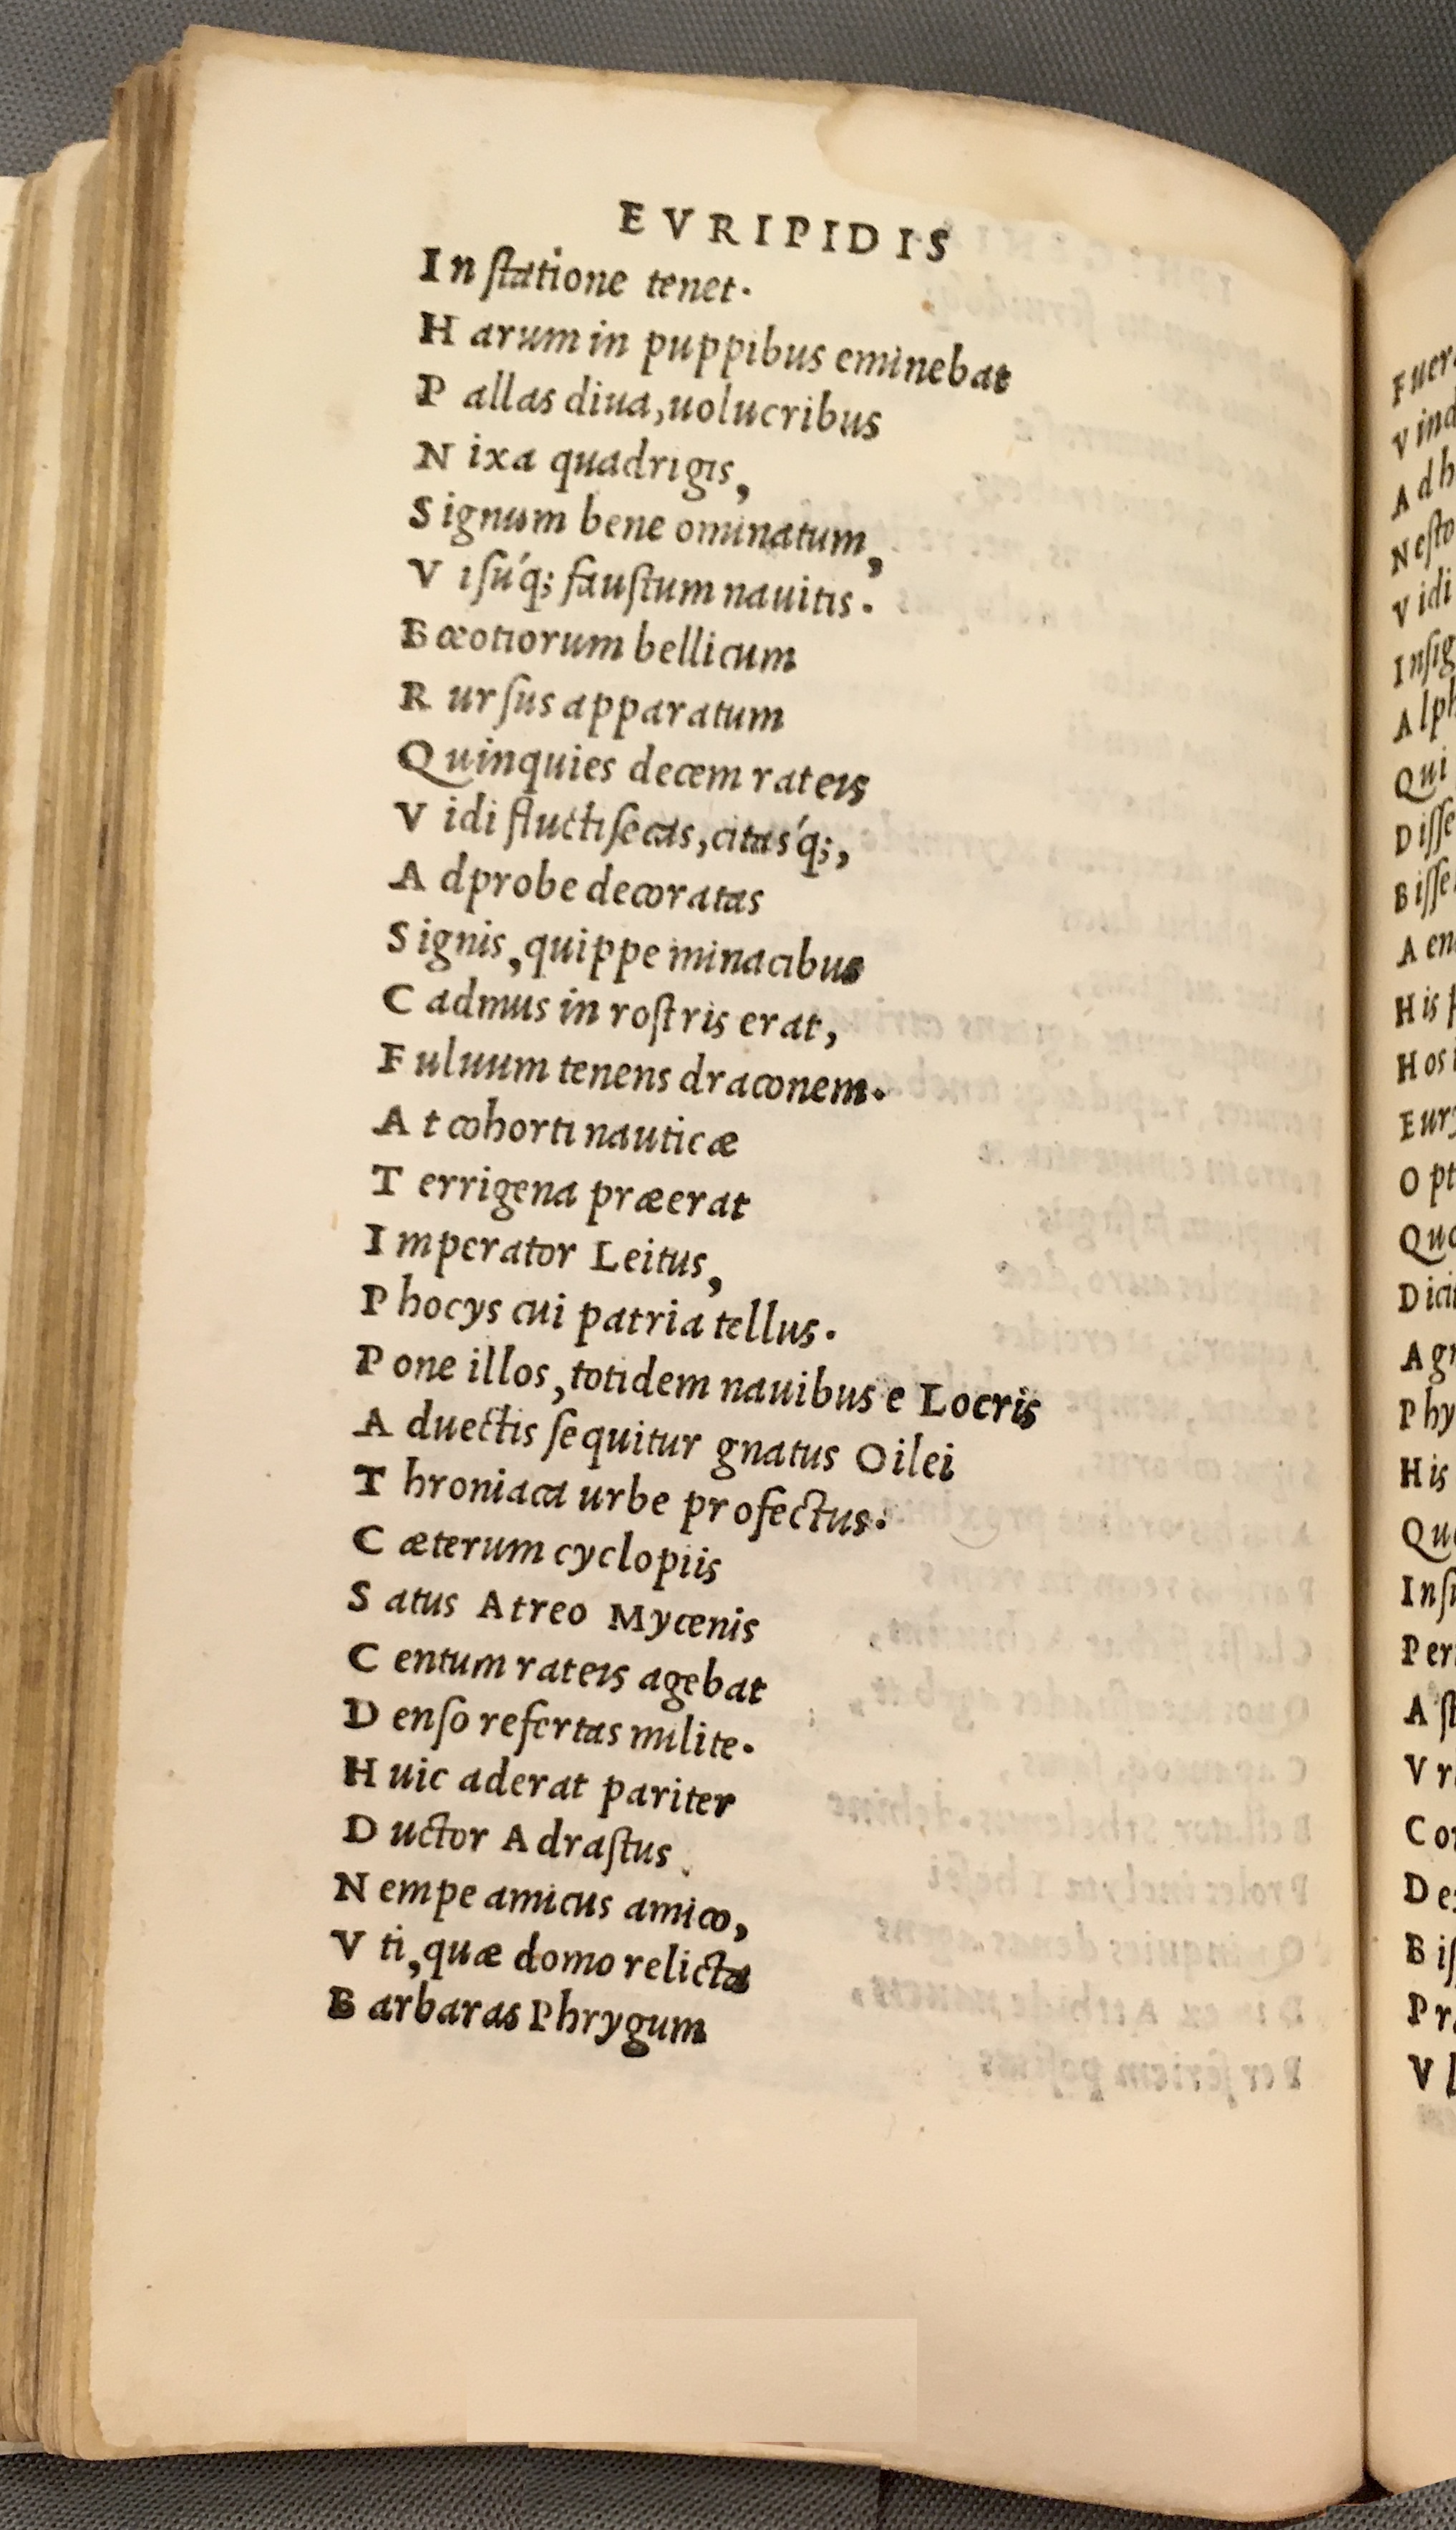 EVRIPIDIS
In ſtatione tenet.
Harum in puppibus eminebat
Pallas diua, uolucribus
Nixa quadrigis,
Signum bene ominatum,
Viſu´q; fauſtum nauitis.
Bœotiorum bellicum
Rurſus apparatum
Quinquies decem rateis
Vidi fluctiſecas, citas´q;,
Adprobe decoratas
Signis, quippe minacibus
Cadmus in roſtris erat,
Fuluum tenens draconem.
At cohorti nauticæ
Terrigena præerat
Imperator Leitus,
Phocys cui patria tellus.
Pone illos, totidem nauibus e Locris
Aduectis ſequitur gnatus Oilei
Throniaca urbe profectus.
Cæterum cyclopiis
Satus Atreo Mycenis
Centum rateis agebat
Denſo refertas milite.
Huic aderat pariter
Ductor Adraſtus.
Nempe amicus amico,
Vti, quæ domo relicta
Barbaras Phrygum